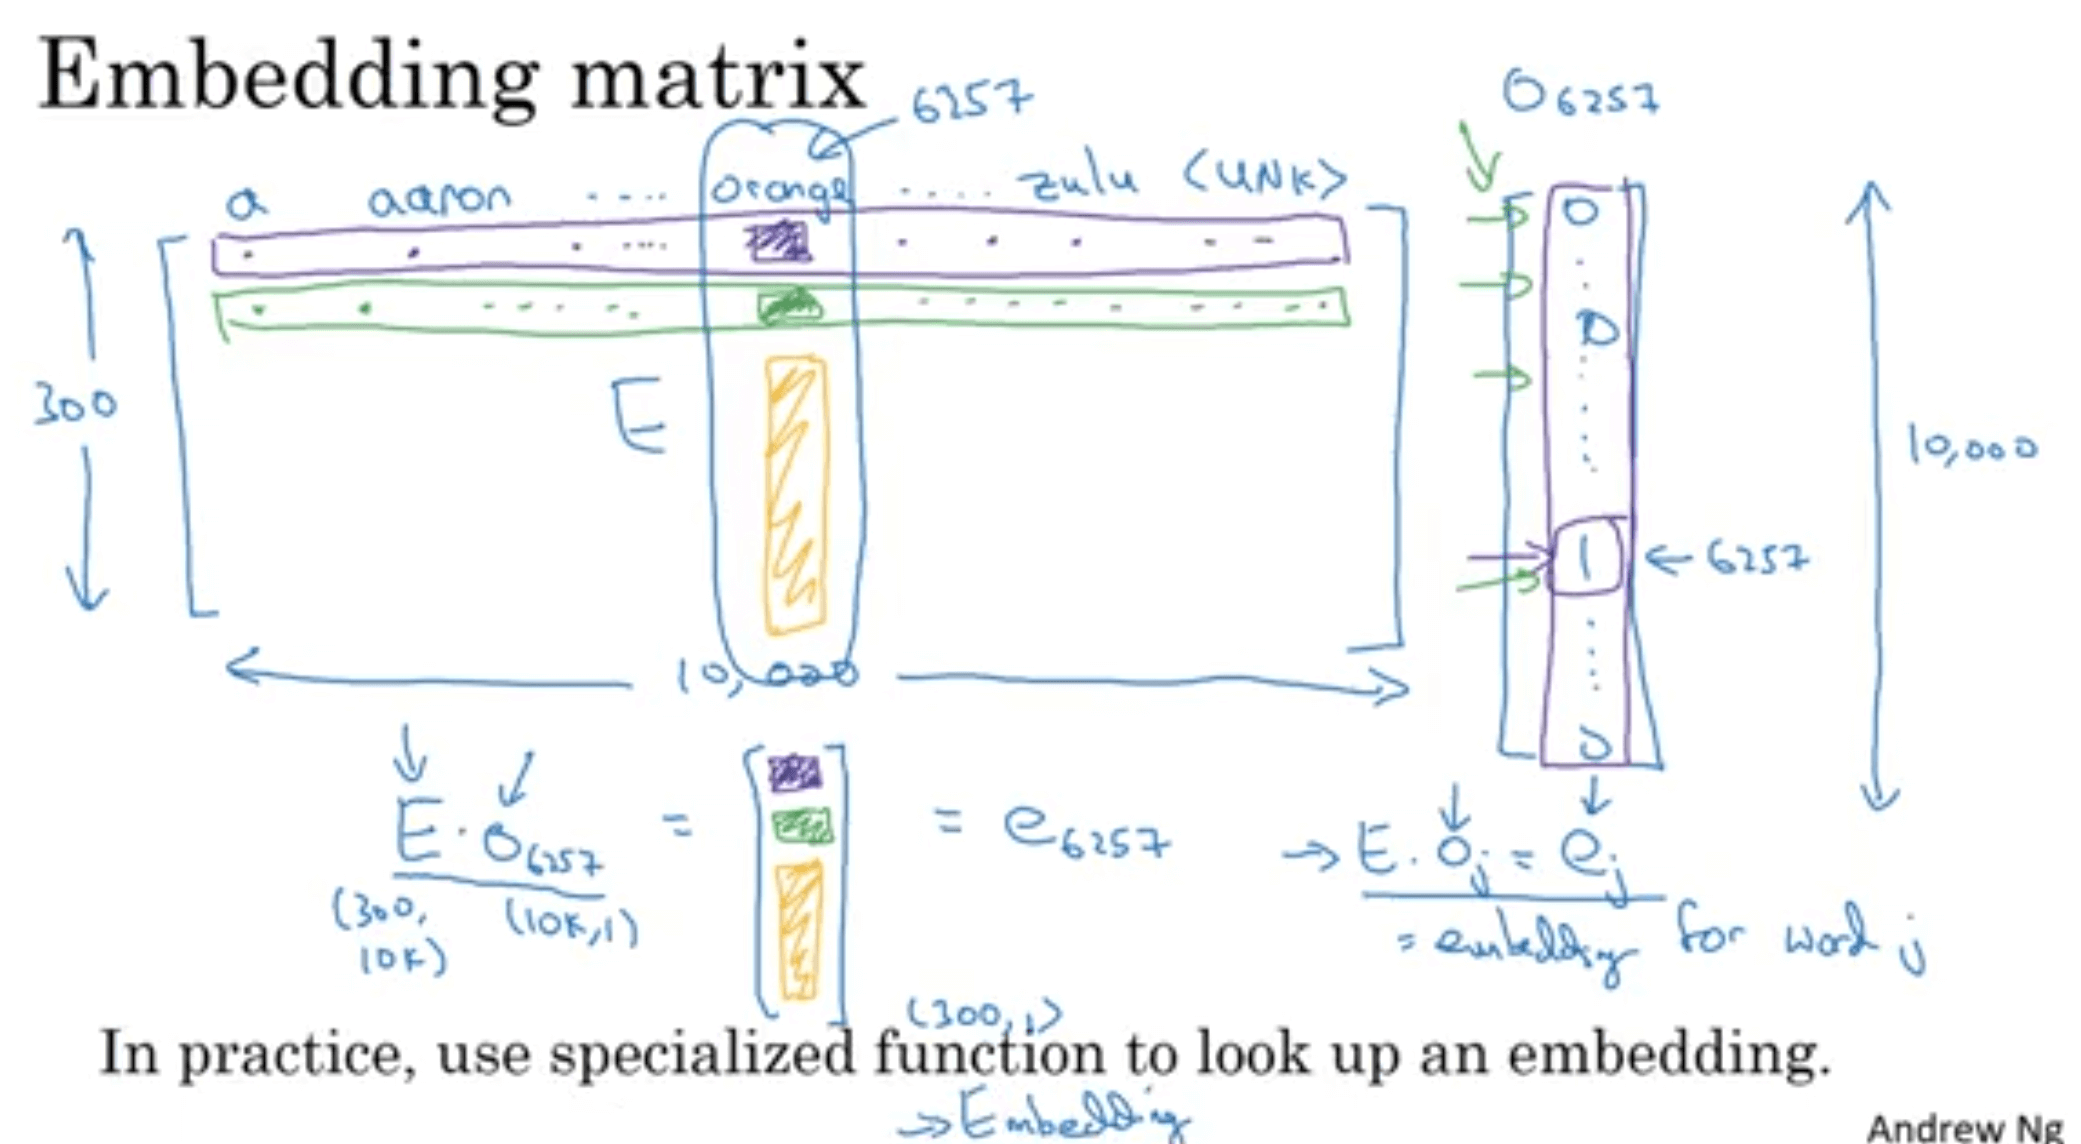 Embedding matrix
6257
O6257
a aaron ..... orange ..... zulu <UNK>
300
E
10,000
0
0
1 ← 6257
0
10,000
E · O6257 = = e6257
(300, 10K) (10K,1)
(300,1)
→ E · Oj = ej
= embedding for word j
In practice, use specialized function to look up an embedding.
→ Embedding
Andrew Ng